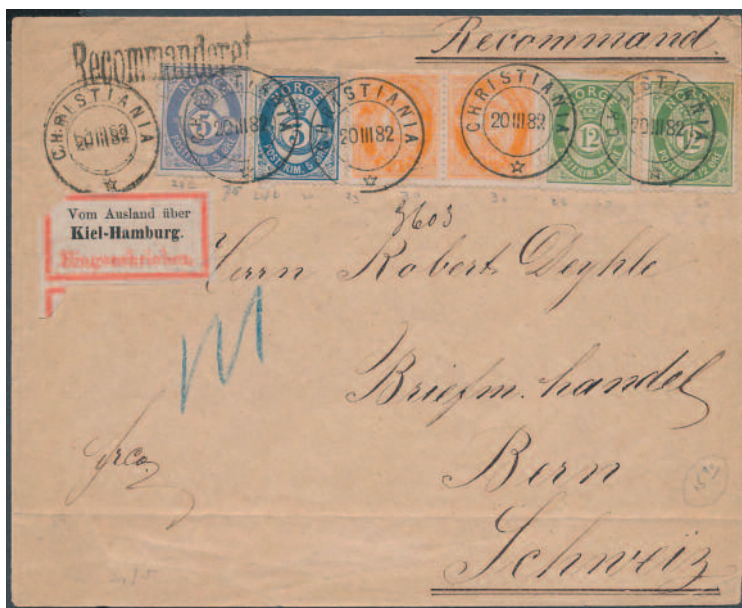 Recommand.
Recommanderet
CHRISTIANIA 20 III 82
NORGE 5 POSTFRIM. 5 ØRE
CHRISTIANIA 20 III 82
NORGE 5 POSTFRIM. 5
CHRISTIANIA 20 III 82
CHRISTIANIA 20 III 82
12 POSTFRIM. 12
CHRISTIANIA 20 III 82
NORGE 12 POSTFRIM. 12 ØRE
3603
Vom Ausland über
Kiel-Hamburg.
Eingeschrieben.
Herrn Robert Deyhle
Briefm. handel
Bern
Schweiz
frco